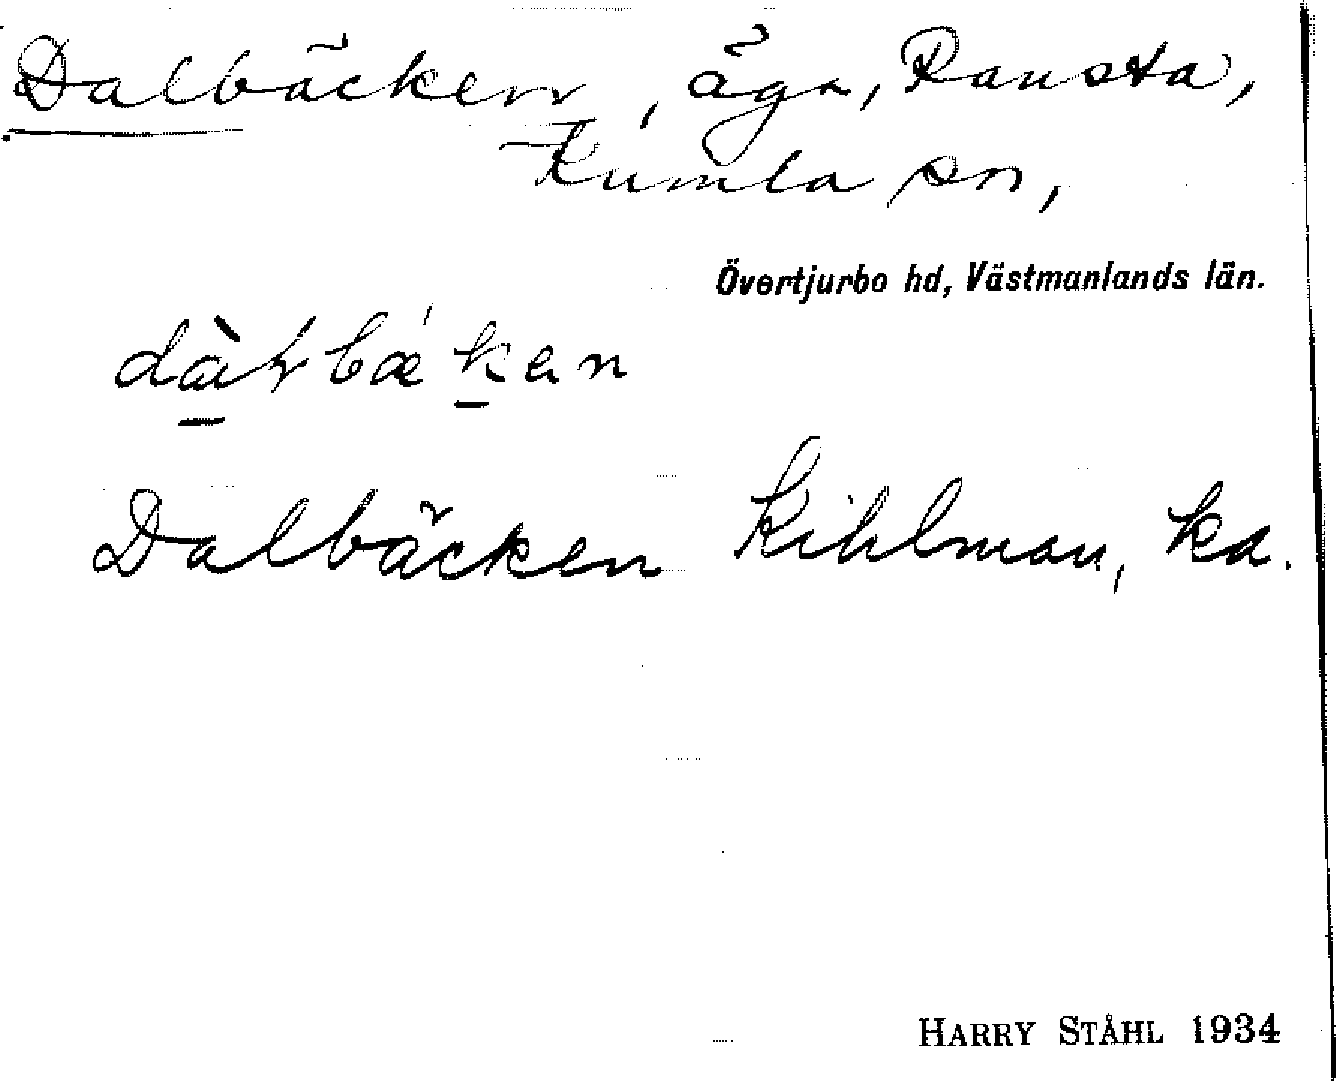 Dalbäcken, äga, Ransta,
Kumla sn,
Övertjurbo hd, Västmanlands län.
Dalbäcken Kihlman, ka.
HARRY STÅHL 1934